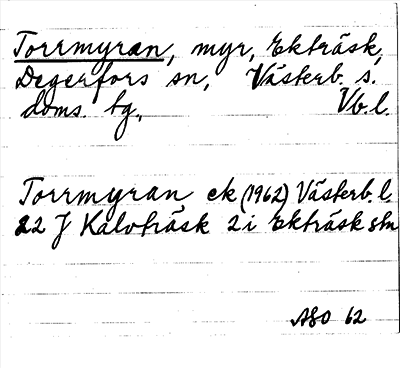 Torrmyran, myr, Ekträsk,
Degerfors sn, Västerb. s.
doms. tg., Vb. l.
Torrmyran ek (1962) Västerb. l.
22 J Kalvträsk 2 i Ekträsk stn
62